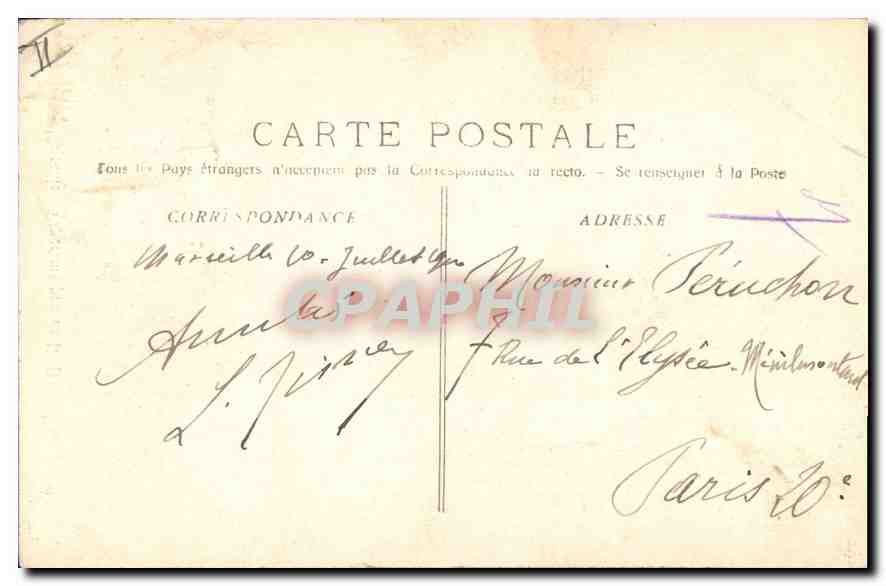 II
CARTE POSTALE
Tous les Pays étrangers n'acceptent pas la Correspondance au recto. - Se renseigner à la Poste
CORRESPONDANCE
Marseille 10 Juillet
L.
ADRESSE
Monsieur Péruchon
7 Rue de l'Elysée - Ménilmontant
Paris 20e
CPAPHIL